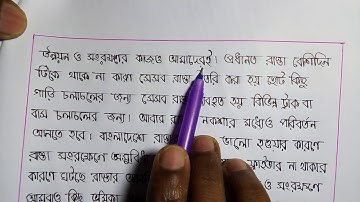 উন্নয়ন ও সংরক্ষণের কাজও আমাদেরই। প্রধানত রাস্তা বেশিদিন
টিকে থাকে না কারণ যেসব রাস্তা তৈরি করা হয় ছোট কিছু
গাড়ি চলাচলের জন্য সেসব রাস্তা ব্যবহৃত হয় বিভিন্ন ট্রাক বা
বাস চলাচলের জন্য। আবার রাস্তার নকশার মধ্যেও পরিবর্তন
আনতে হবে। বাংলাদেশে রাস্তা ভালো হওয়ার কারণে
রাস্তা সংরক্ষণে অসুবিধা না থাকার
কারণে ঘটছে রাস্তার ও সংরক্ষণে
আমরাও কিছু ভূমিকা